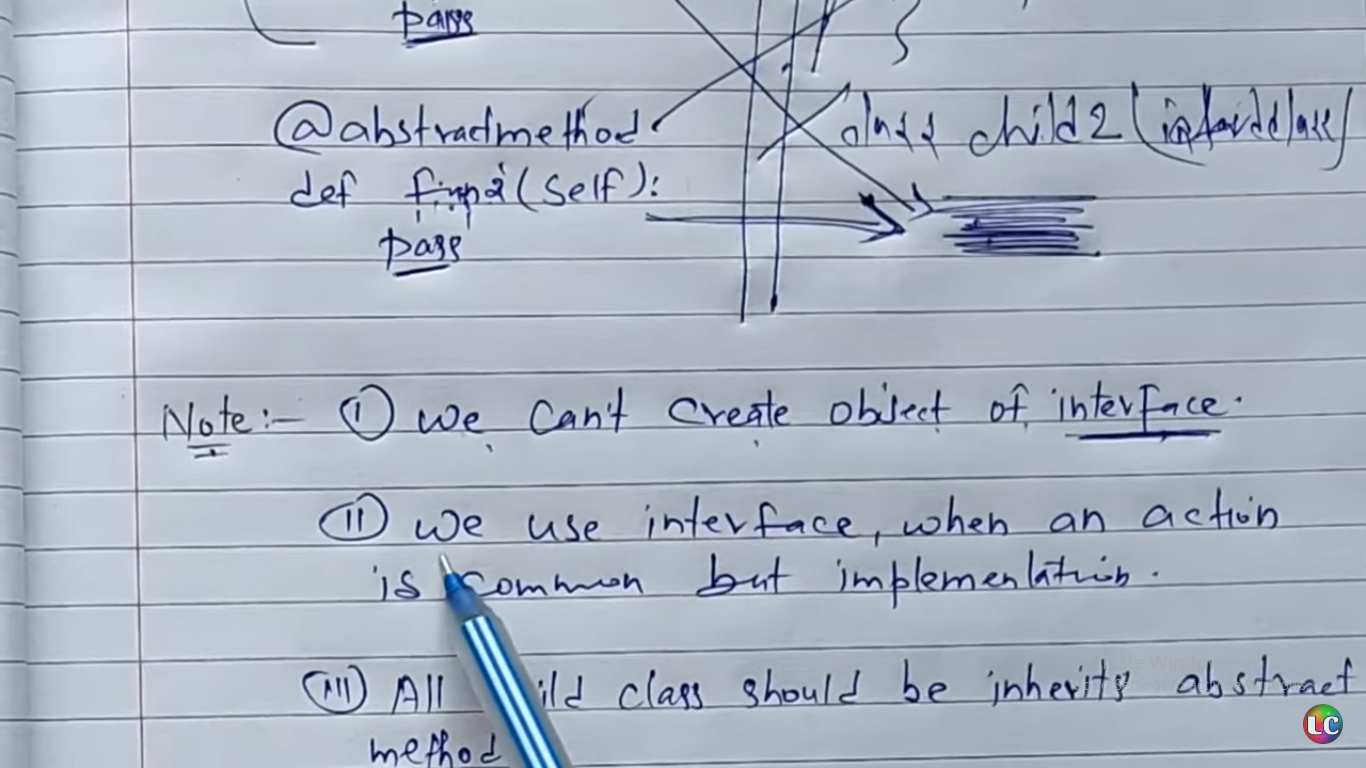 pass
@abstractmethod
class child2 (
def fun2(self):
pass
Note:- (I) We can't create object of interface.
(II) We use interface, when an action
is common but implementation.
(III) All ild class should be inherits abstract
method
LC